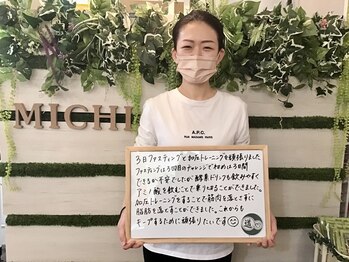 MICHI
A.P.C.
RUE MADAME PARIS
3日ファスティングと加圧トレーニングを頑張りました
ファスティングは3回目のチャレンジで初めは3日間
できるか不安でしたが、酵素ドリンクも飲みやすく
アミノ酸を飲むことで乗りこえることができました。
加圧トレーニングをすることで筋肉を落とさずに
脂肪を落とすことができました。これからも
キープするために頑張りたいです
道